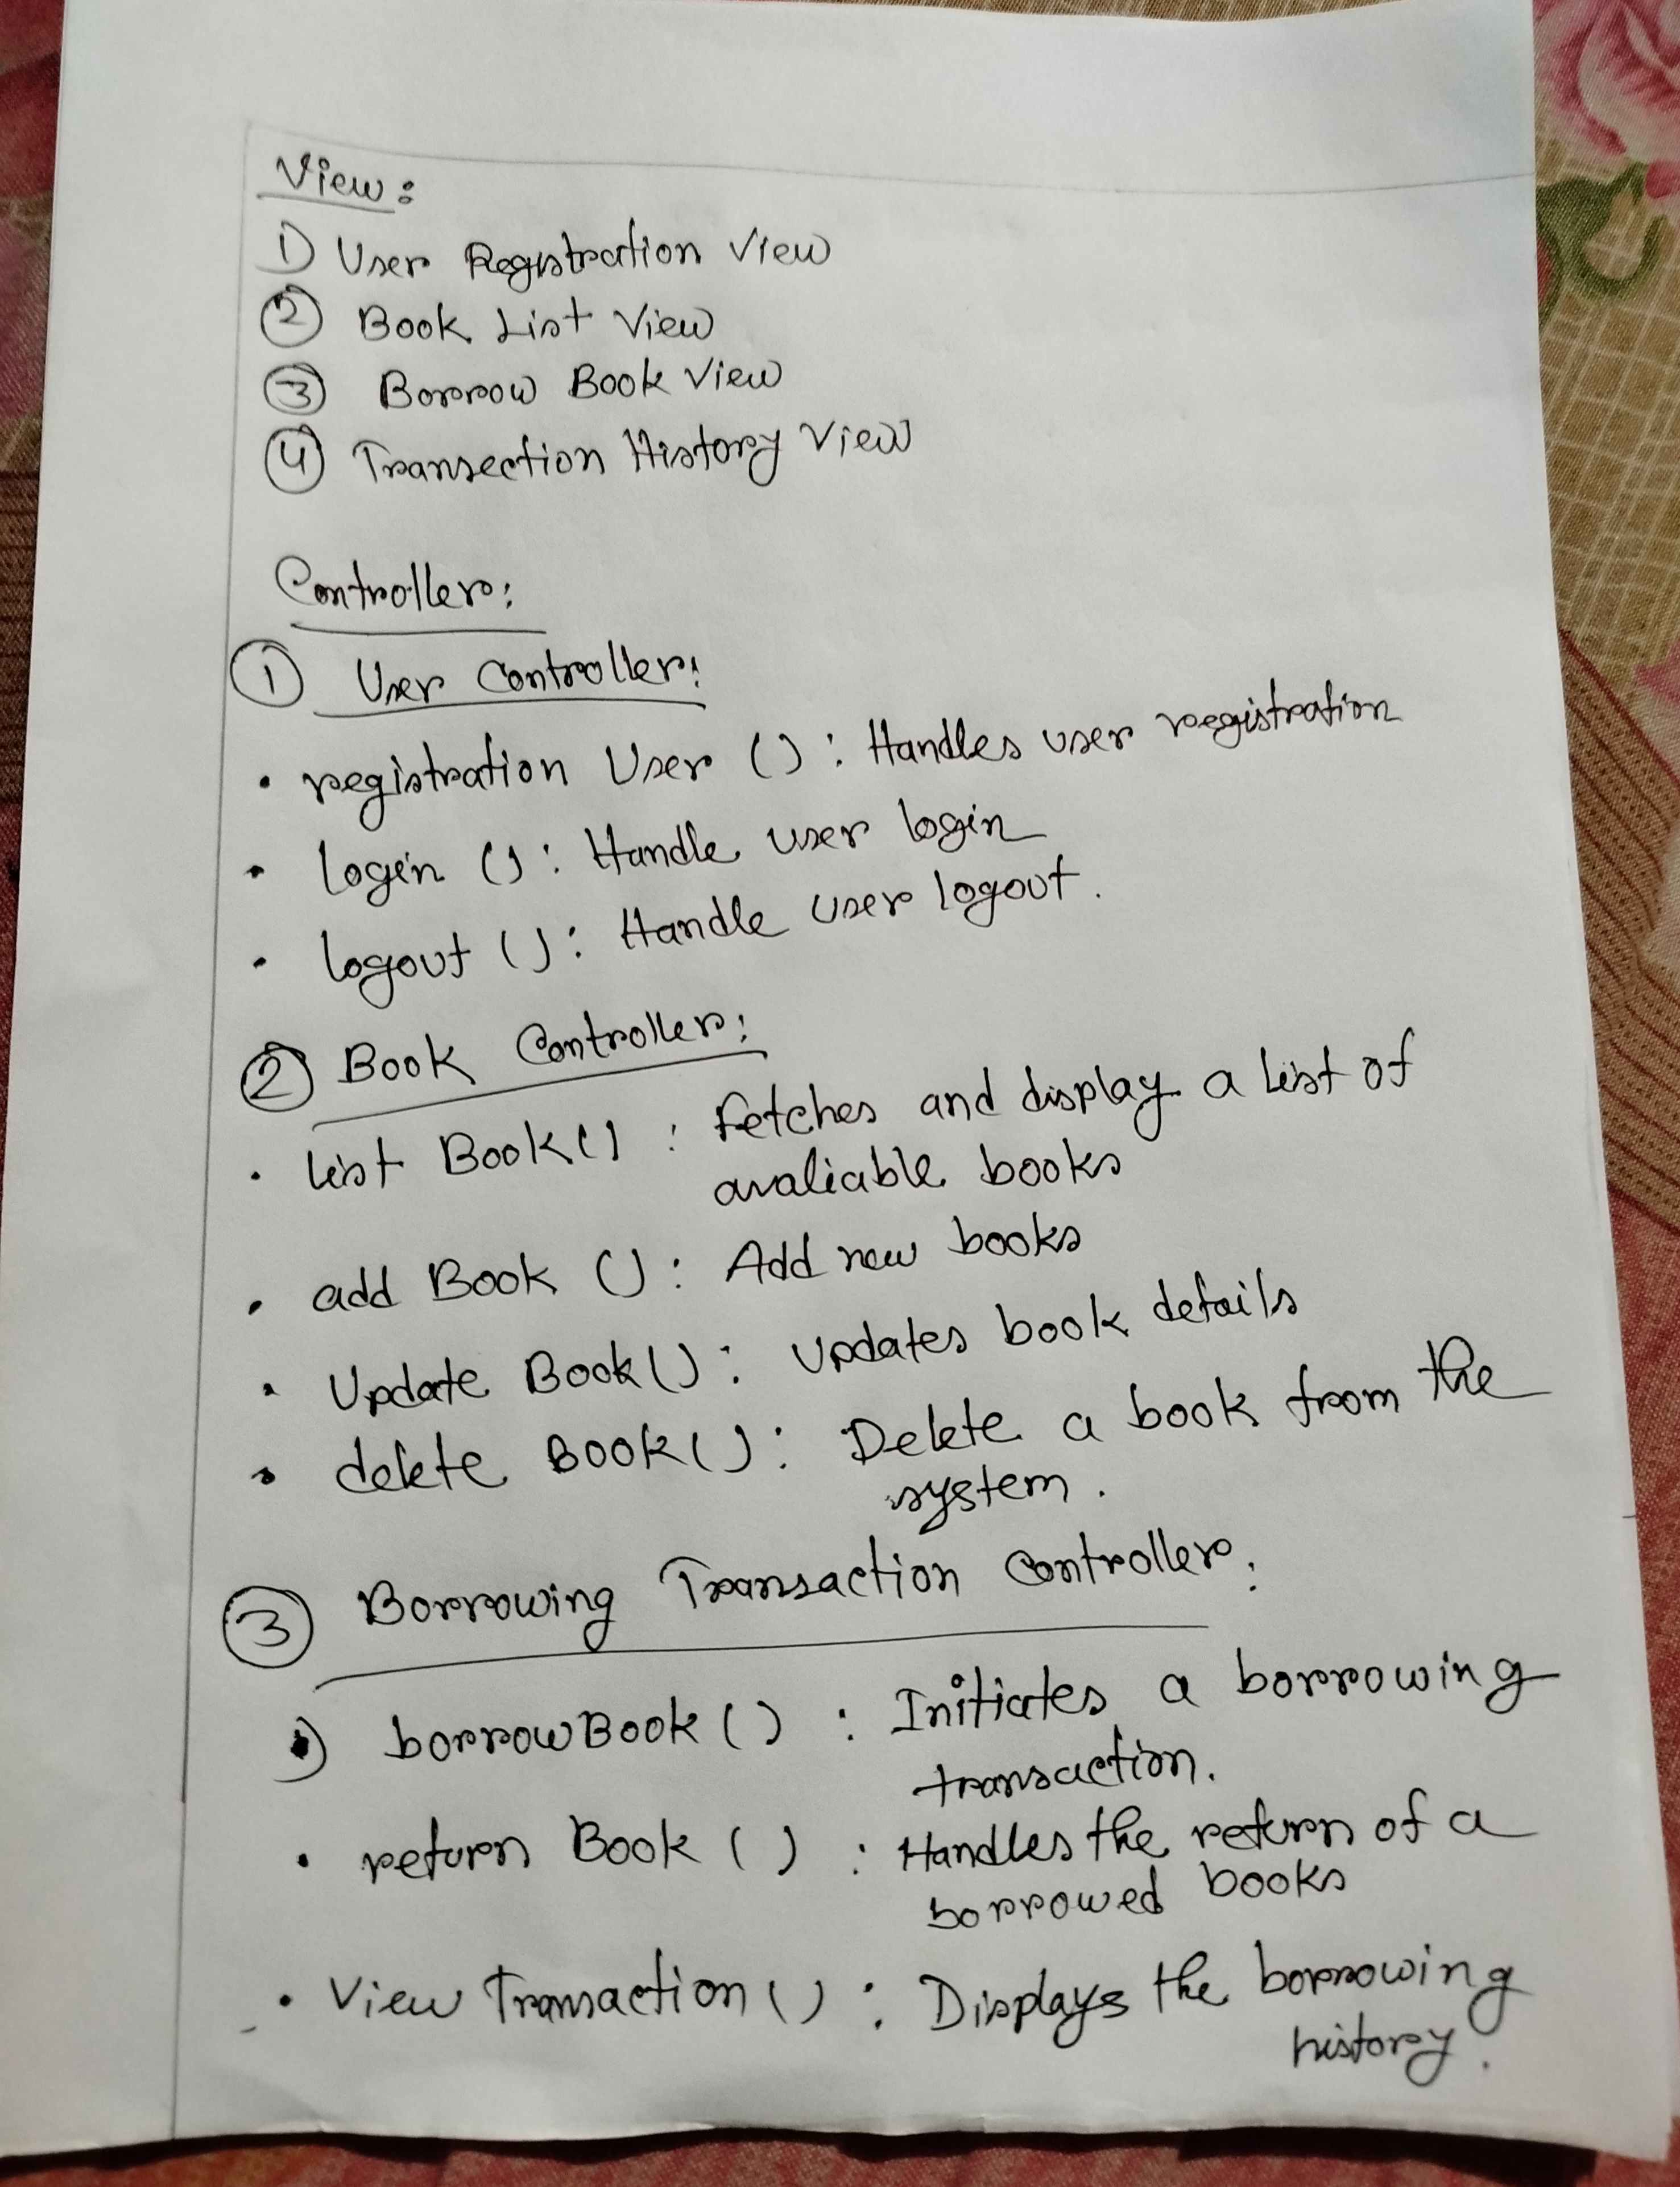 View:
1) User Registration View
2 Book List View
3 Borrow Book View
4 Transection History View
Controller:
1 User Controller:
• registration User () : Handles user registration
• login () : Handle user login
• logout () : Handle user logout.
2 Book Controller:
• list Book() : fetches and display a list of
avaliable books
• add Book () : Add new books
• Update Book() : Updates book details
• delete Book() : Delete a book from the
system.
3 Borrowing Transaction Controller:
•) borrowBook () : Initiates a borrowing
transaction.
• return Book () : Handles the return of a
borrowed books
• View Transaction () : Displays the borrowing
history.